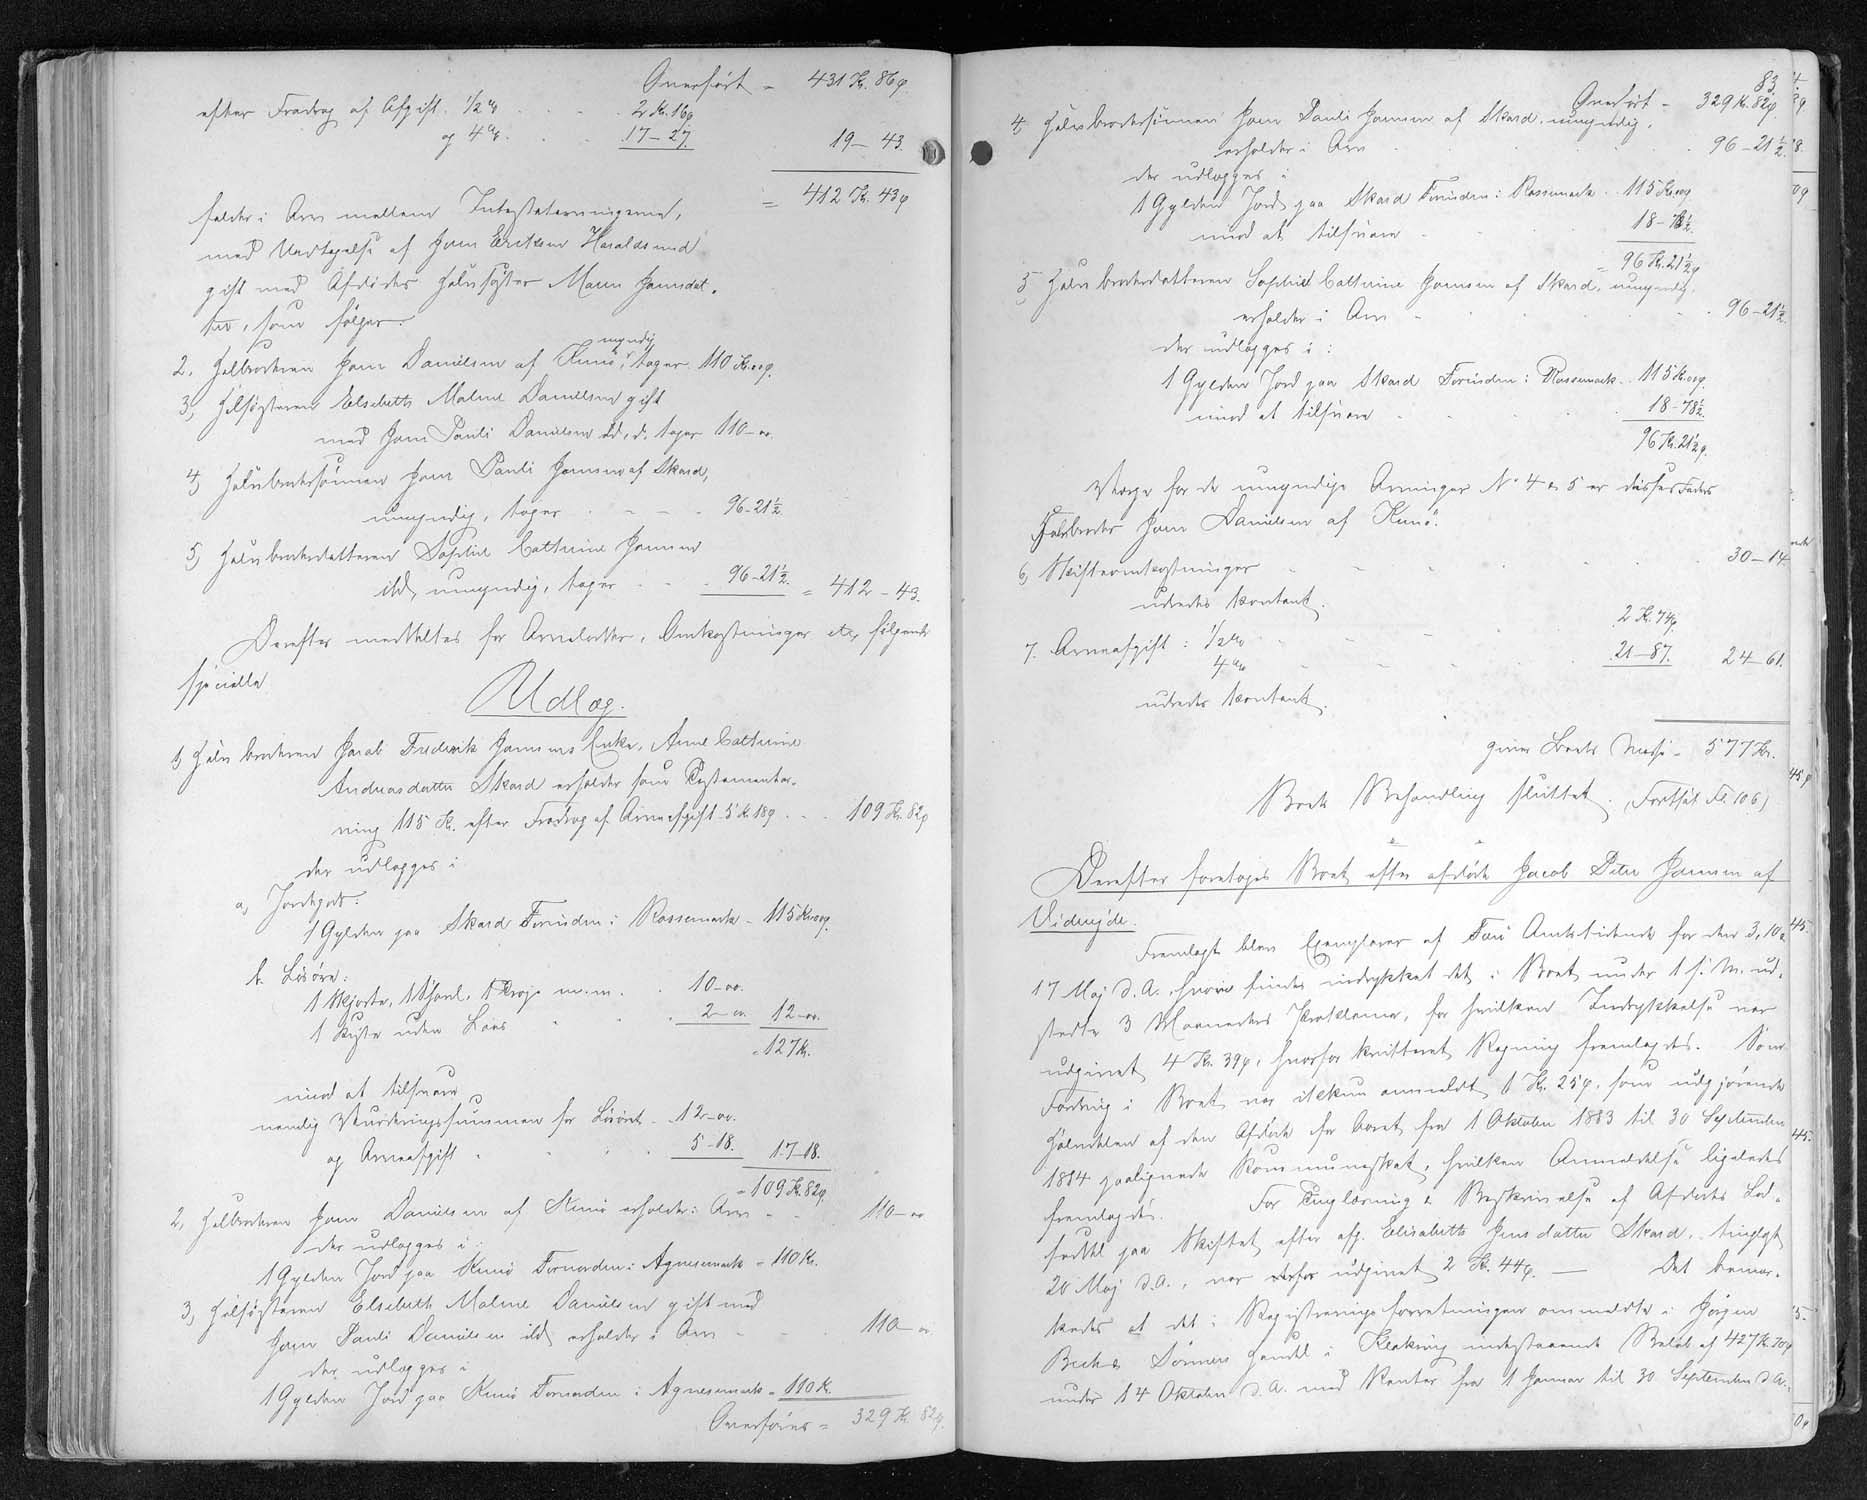 Overført = 431 Kr. 86 ø.
efter Fradrag af Afgift ½ % . . . 2 Kr. 16 ø
og 4 % . . . 17 – 27. 19 – 43.
= 412 Kr. 43 ø
falder i Arv mellem Intestatarvingerne,
med Undtagelse af Joen Eriksen Haraldsund
gift med Afdødes Halvsøster Maren Joensdat-
ter, som følger.
2, Helbroderen Joen Danielsen af Kunø, myndig, tager 110 Kr. oo ø.
3, Helsøsteren Elsebeth Malene Danielsen gift
med Joen Pauli Danielsen ibd. d. tager 110 – oo.
4, Halvbrodersønnen Joen Pauli Joensen af Skard,
umyndig, tager . - - - 96 – 21½.
5, Halvbroderdatteren Sophie Cathrine Joensen
ibd, umyndig, tager . - - . 96 – 21½. = 412 – 43.
Derefter meddeltes for Arvelodder, Omkostninger etc. følgende
specielle
Udlæg.
1, Halvbroderen Jacob Frederik Joensens Enke, Anne Cathrine
Andreasdatter Skard erholder som Testamentar-
ving 115 Kr. efter Fradrag af Arveafgift 5 Kr. 18 ø . . . 109 Kr. 82 ø
der udlægges i
a, Jordegods.
1 Gylden paa Skard Foruden: Rossemark – 115 Kr. oo ø.
b. Løsøre:
1 Skjorte, 1 Shawl, 1 Trøje m.m. . . 10 – oo.
1 Kiste uden Laas . . . 2 – oo. 12 – oo.
= 127 Kr.
mod at tilsvare
nemlig Vurderingssummen for Løsøret . 12 – oo.
og Arveafgift . . . 5 – 18. 17 – 18.
= 109 Kr. 82 ø.
2, Helbroderen Joen Danielsen af Kunø erholder i Arv - . 110 – oo
der udlægges i:
1 Gylden Jord paa Kunø Fornorden: Agnesemark = 110 Kr.
3, Helsøsteren Elsebeth Malene Danielsen gift med
Joen Pauli Danielsen ibd, erholder i Arv - . 110 – oo
der udlægges i
1 Gylden Jord paa Kunø Fornorden: Agnesemark = 110 Kr.
Overføres = 329 Kr. 82 ø.
83.
Overført = 329 Kr. 82 ø.
4, Halvbrodersønnen Joen Pauli Joensen af Skard, umyndig,
erholder i Arv . . . 96 – 21½.
der udlægges i
1 Gylden Jord paa Skard Foruden: Rossemark . 115 Kr. oo ø
mod at tilsvare . . . 18 – 78½.
= 96 Kr. 21½ ø
5, Halvbroderdatteren Sophie Cathrine Joensen af Skard, umyndig,
erholder i Arv - . . . 96 – 21½.
der udlægges i:
1 Gylden Jord paa Skard Foruden: Rossemark . 115 Kr. oo ø.
mod at tilsvare . . . 18 – 78½.
96 Kr. 21½ ø.
Værge for de umyndige Arvinger No 4 & 5 er disses Faders
Halvbroder Joen Danielsen af Kunø.
6, Skifteomkostninger . . . 30 – 14
udredes kontant.
7. Arveafgift: ½ % . . . 2 Kr. 74 ø.
4 % . . . 21 – 87. 24 – 61.
udredes kontant.
giver Boets Masse = 577 Kr.
Boets Behandling sluttet. (Fortsat Fl. 106)
Derefter foretoges Boet efter afdøde Jacob Peter Joensen af
Viderejde.
Fremlagt blev Exemplarer af Færø Amtstidende for den 3, 10 &
17 Maj d.A. hvori findes indrykket det i Boet under 1 f. M. ud-
stedte 3 Maaneders Proklama, for hvilken Indrykkelse var
udgivet 4 Kr. 39 ø, hvorfor kvitteret Regning fremlagdes. Som
Fordring i Boet var ikkun anmeldt 1 Kr. 25 ø, som udgjørende
Halvdelen af den Afdøde for Aaret fra 1 Oktober 1883 til 30 September
1884 paalignede Kommuneskat, hvilken Anmeldelse ligeledes
fremlagdes. For Tinglæsning & Beskrivelse af Afdødes Lod-
seddel paa Skiftet efter afg. Elisabeth Jensdatter Skard, tinglyst
20 Maj d.A., var derfor udgivet 2 Kr. 44 ø. — Det bemær-
kedes at det i Registreringsforretningen ommeldte i Jørgen
Bech & Sønners Handel i Klaksvig indestaaende Beløb af 427 Kr. 70 ø
under 14 Oktober d.A. med Renter fra 1 Januar til 30 September d.A.